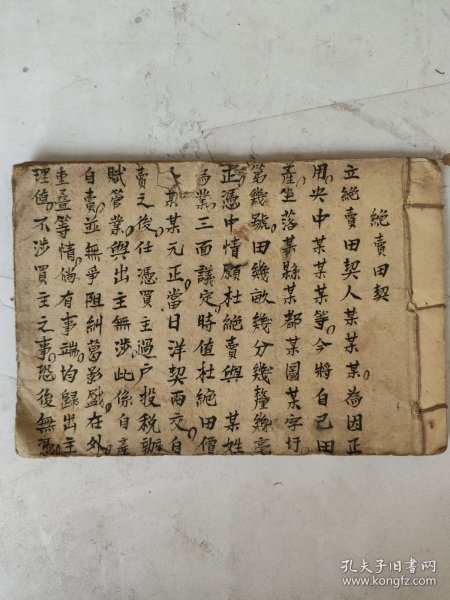 絕賣田契
立絕賣田契人某某某為因正
用央中某某某等今將自己田
產坐落某縣某都某圖某字圩
第幾號田幾畝幾分幾釐幾毫
正憑中情願杜絕賣與某姓
為業三面議定時值杜絕田價
某某元正當日洋契兩交自
賣之後任憑買主過戶投稅辦
賦管業與出主無涉此係自產
自賣並無爭阻糾葛影戤在外
重疊等情倘有事端均歸出主
理值不涉買主之事恐後無憑
孔夫子旧书网
www.kongfz.com